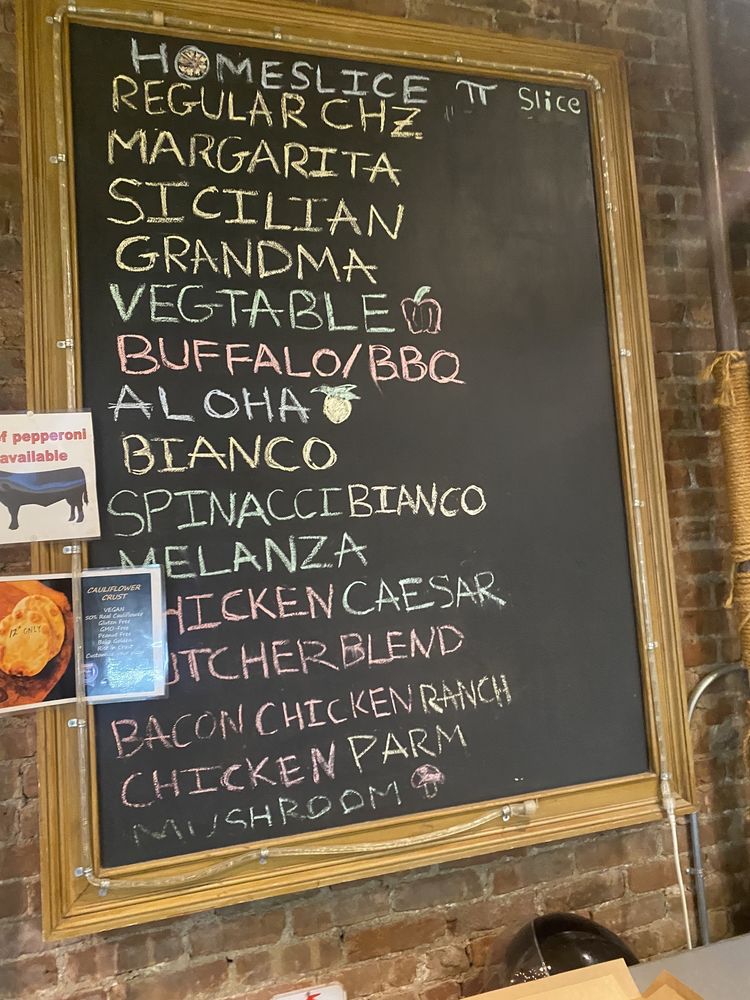 HOMESLICE π Slice
REGULAR CHZ
MARGARITA
SICILIAN
GRANDMA
VEGTABLE
BUFFALO/BBQ
ALOHA
BIANCO
SPINACCI BIANCO
MELANZA
HICKEN CAESAR
UTCHER BLEND
BACON CHICKEN RANCH
CHICKEN PARM
MUSHROOM
f pepperoni
available
12" ONLY
CAULIFLOWER
CRUST
VEGAN
50% Real Cauliflower
Gluten Free
GMO-Free
Peanut Free